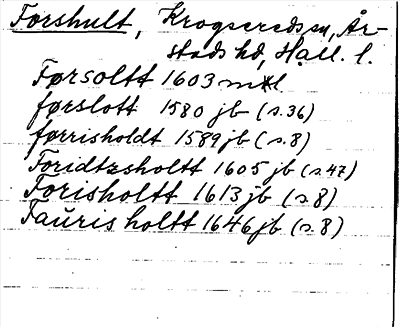 Forshult, Krogsereds sn, År-
stads hd, Hall. l.
Førsoltt 1603 mtl
førslott 1580 jb (s.36)
førrisholdt 1589 jb (s.8)
Foridtzsholtt 1605 jb (s.47)
Forisholtt 1613 jb (s.8)
Faŭris holtt 1646 jb (s.8)